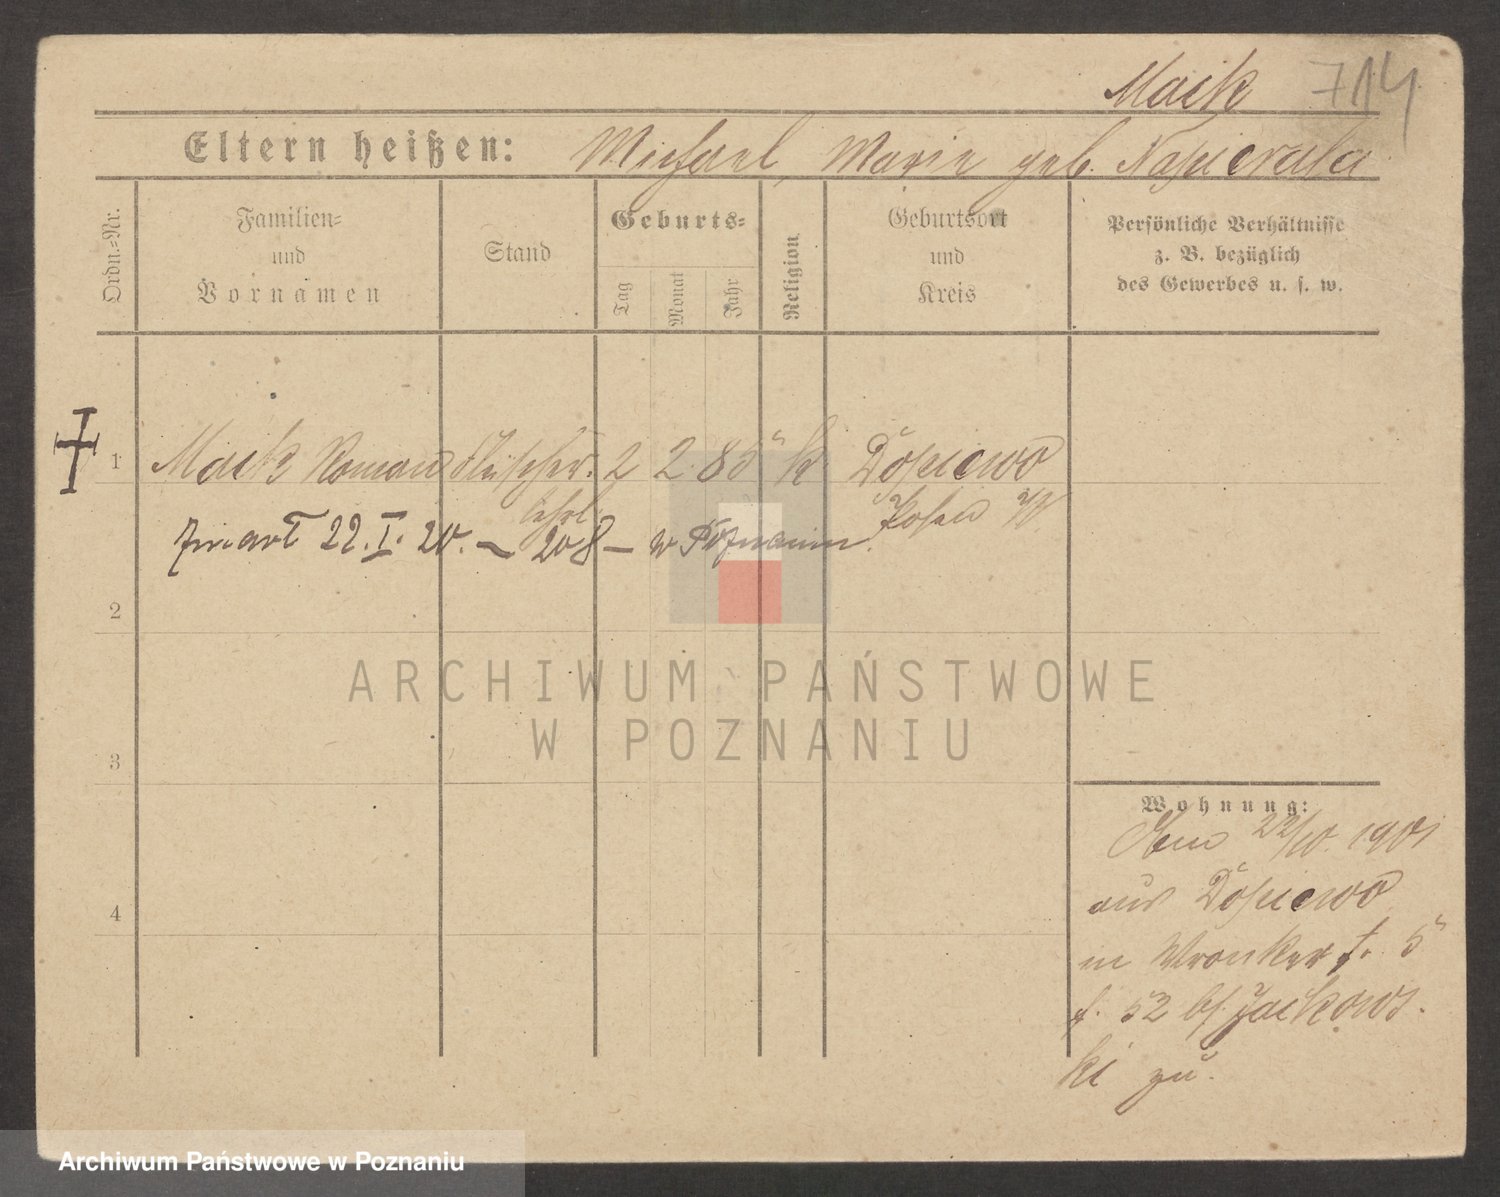 Macik 714
Eltern heißen: Michael, Marie geb. Napierala
Ordn.=Nr.
Familien=
und
Vornamen
Stand
Geburts=
Tag
Monat
Jahr
Religion
Geburtsort
und
Kreis
Persönliche Verhältnisse
z. B. bezüglich
des Gewerbes u. s. w.
1 Macik Roman Fleischer. 2 2 85 k Dopiewo
lehrl Posen W
zmarł 22. I. 20. — 208 — w Poznaniu.
2
3
4
ARCHIWUM PAŃSTWOWE
W POZNANIU
Wohnung:
22/10. 1901
aus Dopiewo
in Wronkerf. 5
f. 52 bf. Jackows-
ki zu.
Archiwum Państwowe w Poznaniu